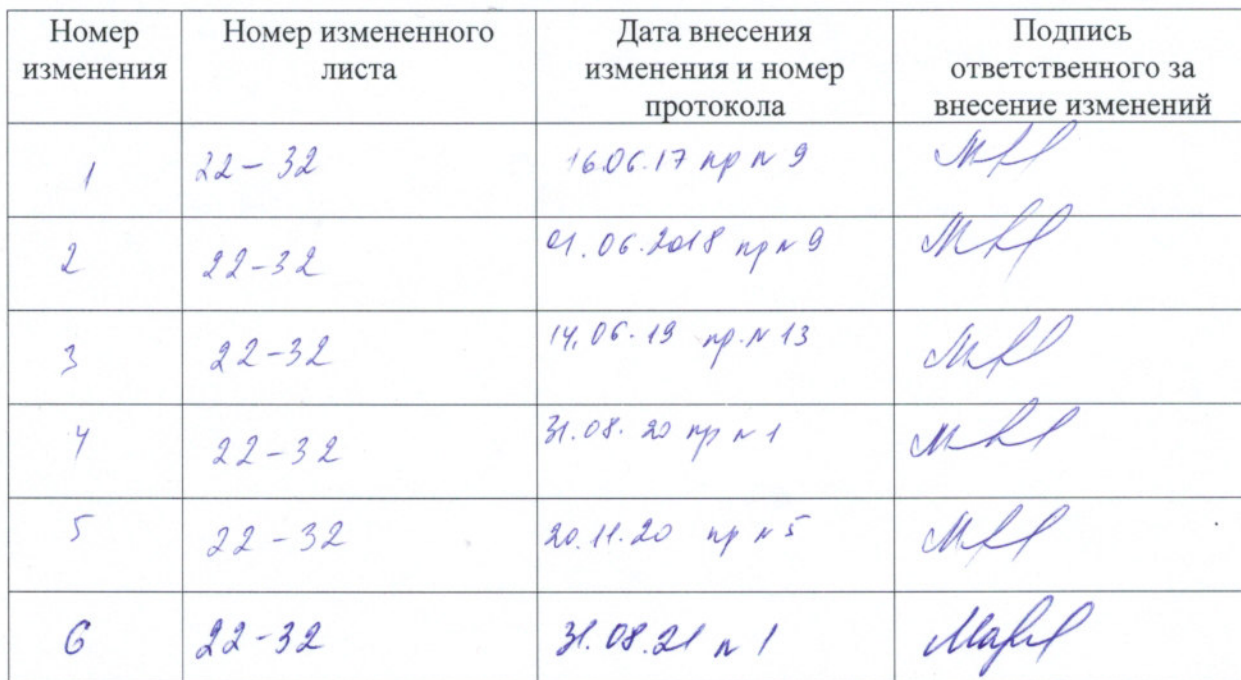 Номер изменения | Номер измененного листа | Дата внесения изменения и номер протокола | Подпись ответственного за внесение изменений
1 | 22-32 | 16.06.17 пр № 9
2 | 22-32 | 01.06.2018 пр № 9
3 | 22-32 | 14.06.19 пр. № 13
4 | 22-32 | 31.08.20 пр № 1
5 | 22-32 | 20.11.20 пр № 5
6 | 22-32 | 31.08.21 № 1